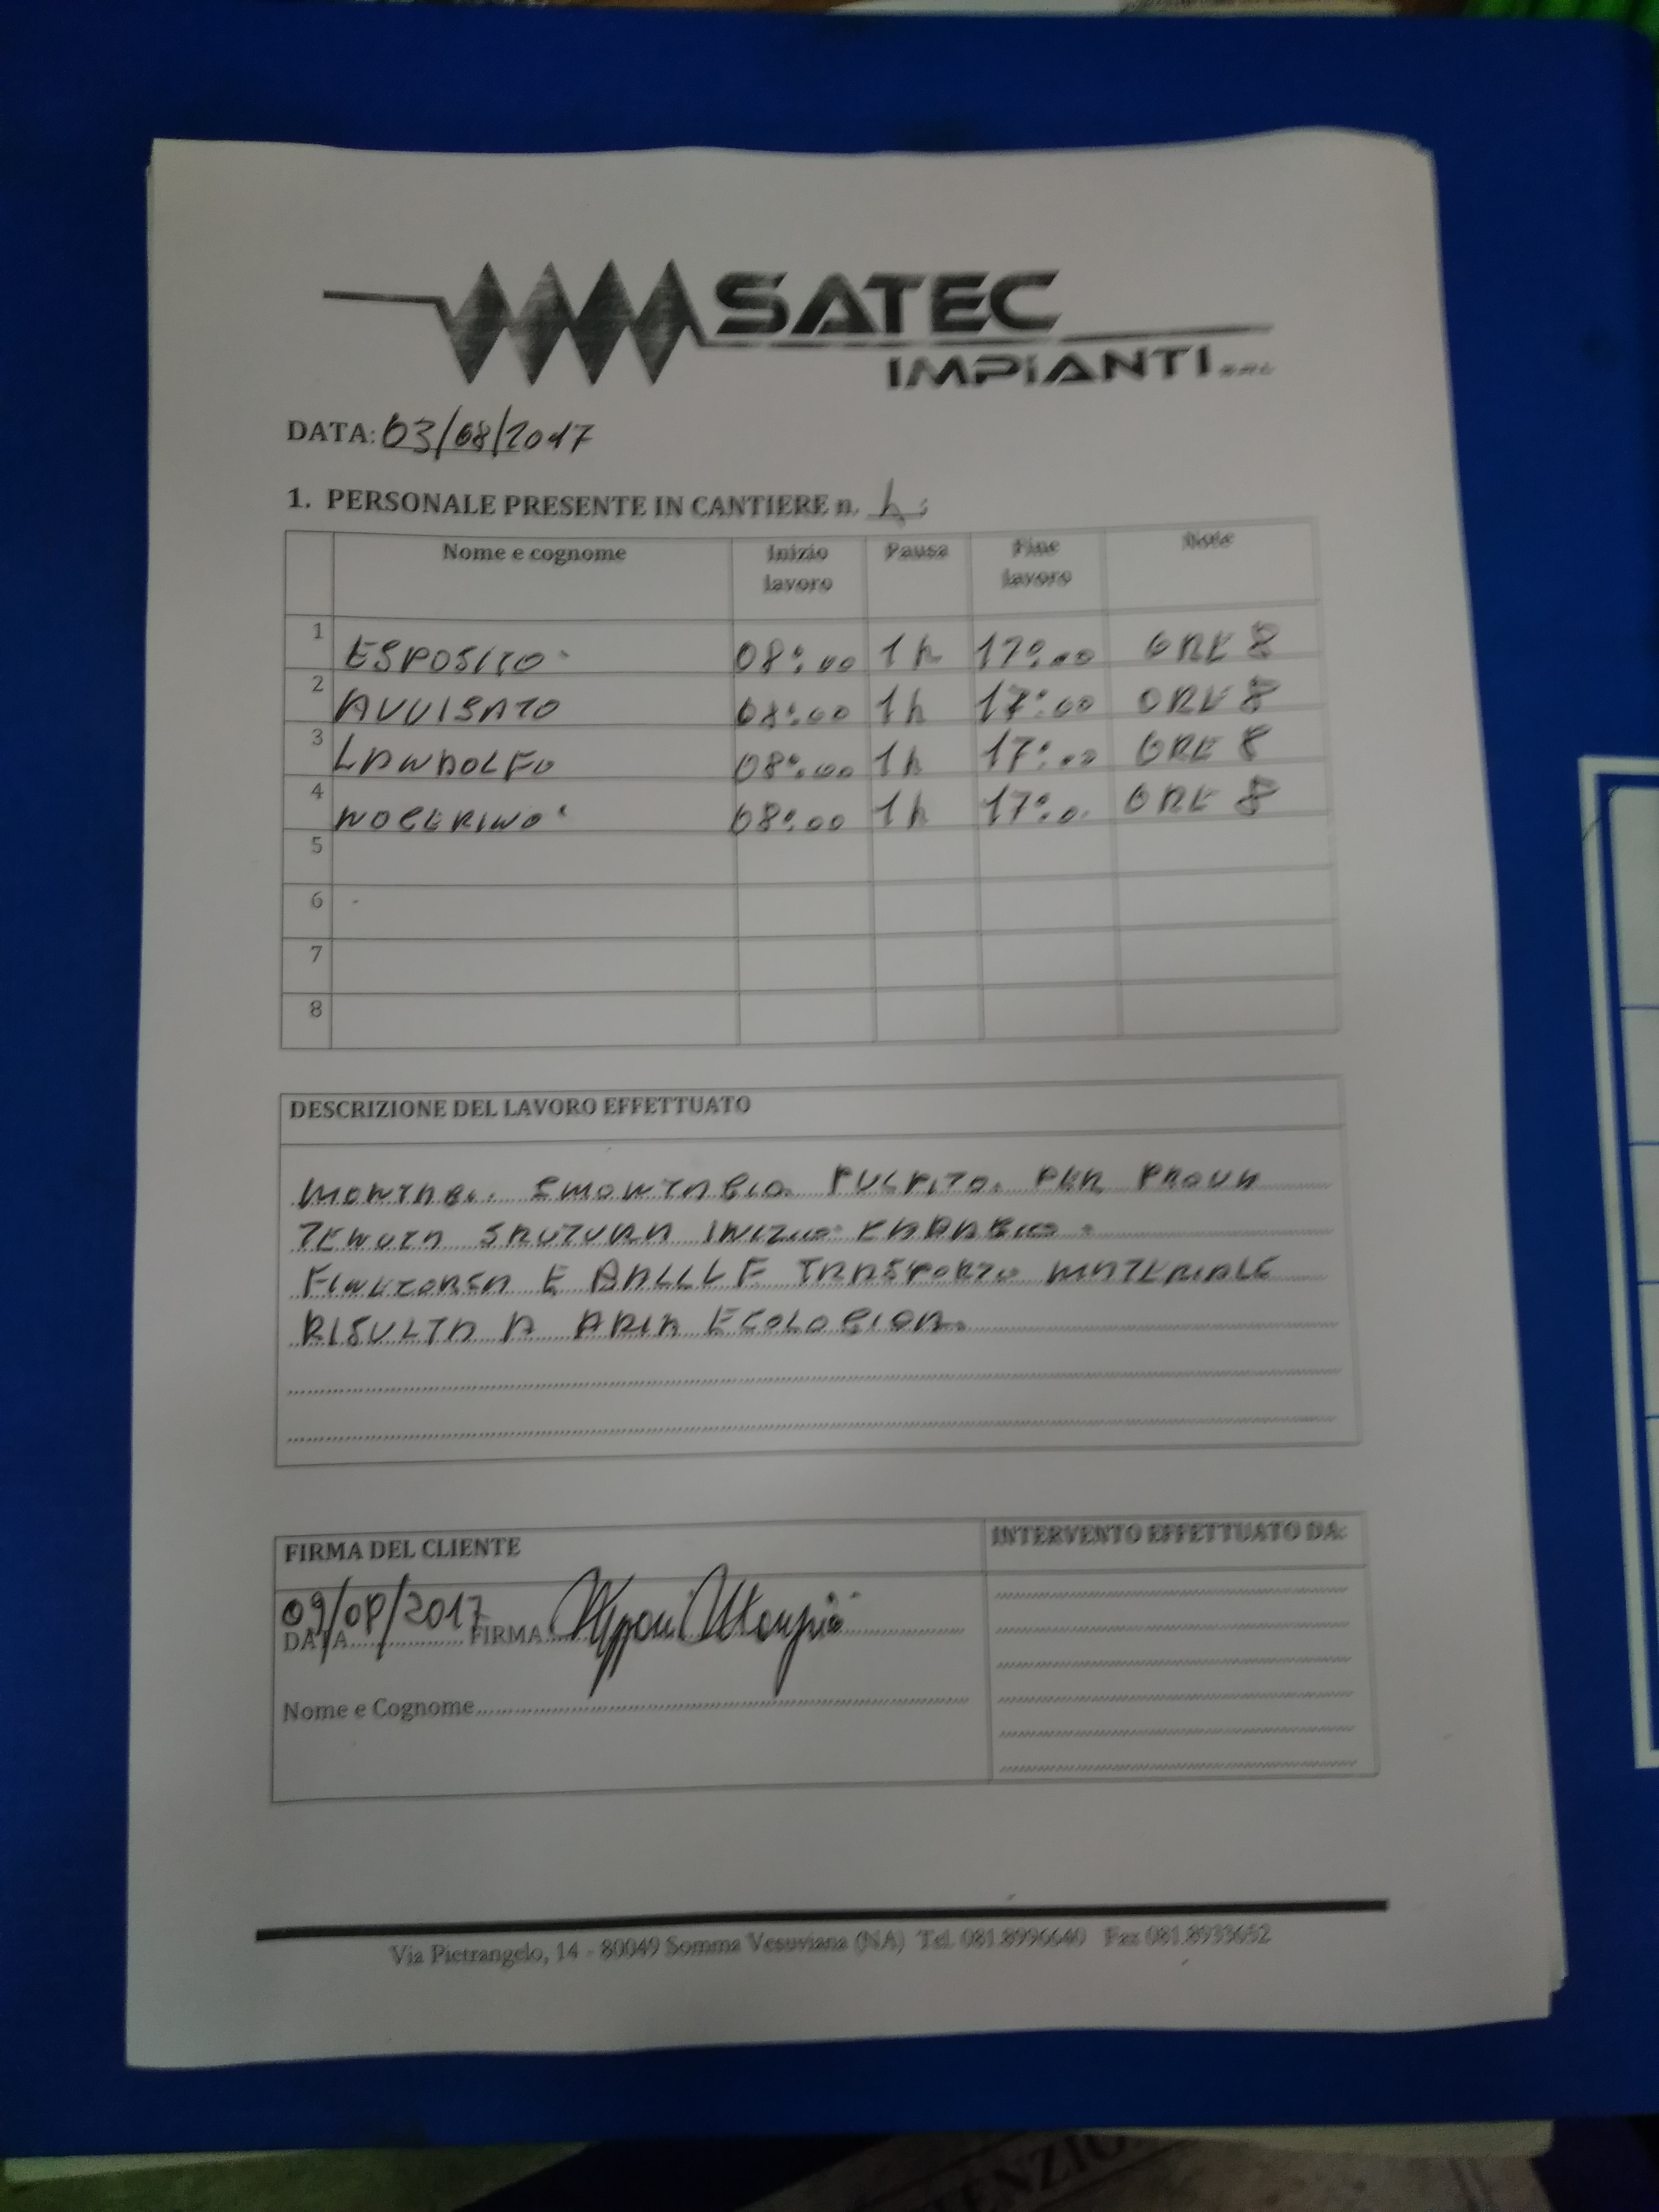 SATEC
IMPIANTI SRL
DATA: 03/08/2017
1. PERSONALE PRESENTE IN CANTIERE n. 4
Nome e cognome Inizio lavoro Pausa Fine lavoro Note
1 ESPOSITO 08:00 1h 17:00 ORE 8
2 AVVISATO 08:00 1h 17:00 ORE 8
3 LANDOLFO 08:00 1h 17:00 ORE 8
4 NOCERINO 08:00 1h 17:00 ORE 8
5
6
7
8
DESCRIZIONE DEL LAVORO EFFETTUATO
SMONTAGIO PULPITO PER PROVA
TENUTA INIZIO
E TRASPORTO MATERIALE
RISULTA A ARIA ECOLOGICA.
FIRMA DEL CLIENTE INTERVENTO EFFETTUATO DA:
09/08/2017
DATA FIRMA
Nome e Cognome
Via Pietrangelo, 14 - 80049 Somma Vesuviana (NA) Tel. 081.8996640 Fax 081.8933652
ENZIO